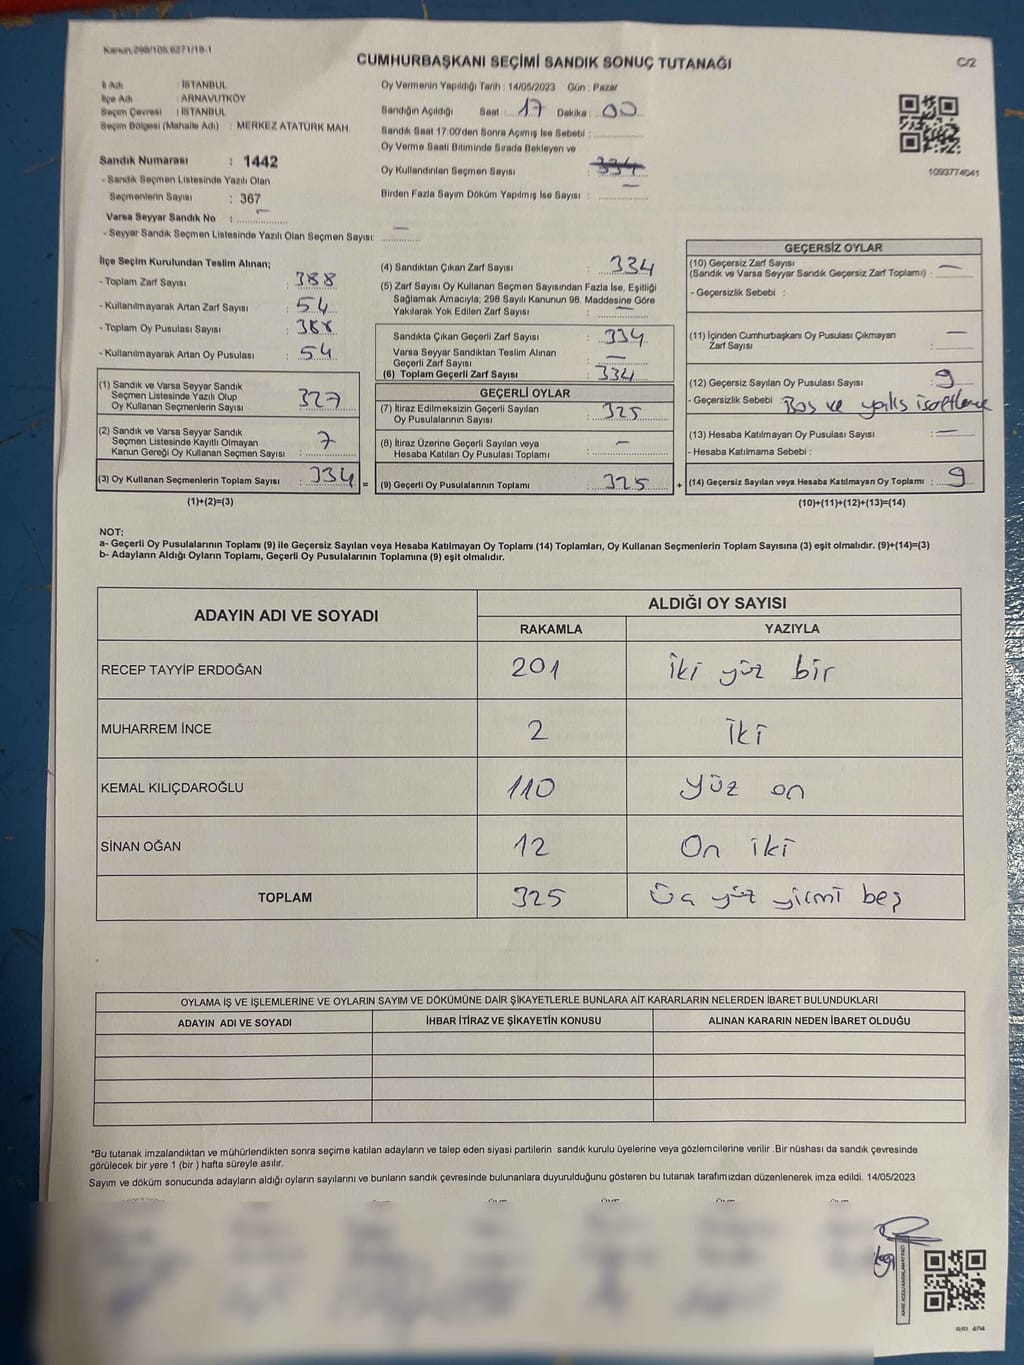 Kanun,298/105,6271/18-1
CUMHURBAŞKANI SEÇİMİ SANDIK SONUÇ TUTANAĞI
C/2
İl Adı : İSTANBUL
İlçe Adı : ARNAVUTKÖY
Seçim Çevresi : İSTANBUL
Seçim Bölgesi (Mahalle Adı) : MERKEZ ATATÜRK MAH.
Sandık Numarası : 1442
- Sandık Seçmen Listesinde Yazılı Olan
Seçmenlerin Sayısı : 367
Varsa Seyyar Sandık No : —
- Seyyar Sandık Seçmen Listesinde Yazılı Olan Seçmen Sayısı: —
Oy Vermenin Yapıldığı Tarih : 14/05/2023 Gün : Pazar
Sandığın Açıldığı Saat : 17 Dakika : 00
Sandık Saat 17:00'den Sonra Açımış İse Sebebi :
Oy Verme Saati Bitiminde Sırada Bekleyen ve
Oy Kullandırılan Seçmen Sayısı : 334 —
Birden Fazla Sayım Döküm Yapılmış İse Sayısı :
1093774041
İlçe Seçim Kurulundan Teslim Alınan;
- Toplam Zarf Sayısı : 388
- Kullanılmayarak Artan Zarf Sayısı : 54
- Toplam Oy Pusulası Sayısı : 388
- Kullanılmayarak Artan Oy Pusulası : 54
(1) Sandık ve Varsa Seyyar Sandık
Seçmen Listesinde Yazılı Olup
Oy Kullanan Seçmenlerin Sayısı : 327
(2) Sandık ve Varsa Seyyar Sandık
Seçmen Listesinde Kayıtlı Olmayan
Kanun Gereği Oy Kullanan Seçmen Sayısı : 7
(3) Oy Kullanan Seçmenlerin Toplam Sayısı : 334 =
(1)+(2)=(3)
(4) Sandıktan Çıkan Zarf Sayısı : 334
(5) Zarf Sayısı Oy Kullanan Seçmen Sayısından Fazla İse, Eşitliği
Sağlamak Amacıyla, 298 Sayılı Kanunun 98. Maddesine Göre
Yakılarak Yok Edilen Zarf Sayısı : —
Sandıkta Çıkan Geçerli Zarf Sayısı : 334
Varsa Seyyar Sandıktan Teslim Alınan
Geçerli Zarf Sayısı : —
(6) Toplam Geçerli Zarf Sayısı : 334
GEÇERLİ OYLAR
(7) İtiraz Edilmeksizin Geçerli Sayılan
Oy Pusulalarının Sayısı : 325
(8) İtiraz Üzerine Geçerli Sayılan veya
Hesaba Katılan Oy Pusulası Toplamı : —
(9) Geçerli Oy Pusulalarının Toplamı : 325 +
GEÇERSİZ OYLAR
(10) Geçersiz Zarf Sayısı
(Sandık ve Varsa Seyyar Sandık Geçersiz Zarf Toplamı) : —
- Geçersizlik Sebebi :
(11) İçinden Cumhurbaşkanı Oy Pusulası Çıkmayan
Zarf Sayısı : —
(12) Geçersiz Sayılan Oy Pusulası Sayısı : 9
- Geçersizlik Sebebi : Boş ve
(13) Hesaba Katılmayan Oy Pusulası Sayısı : —
- Hesaba Katılmama Sebebi :
(14) Geçersiz Sayılan veya Hesaba Katılmayan Oy Toplamı : 9
(10)+(11)+(12)+(13)=(14)
NOT:
a- Geçerli Oy Pusulalarının Toplamı (9) ile Geçersiz Sayılan veya Hesaba Katılmayan Oy Toplamı (14) Toplamları, Oy Kullanan Seçmenlerin Toplam Sayısına (3) eşit olmalıdır. (9)+(14)=(3)
b- Adayların Aldığı Oyların Toplamı, Geçerli Oy Pusulalarının Toplamına (9) eşit olmalıdır.
ADAYIN ADI VE SOYADI
ALDIĞI OY SAYISI
RAKAMLA YAZIYLA
RECEP TAYYİP ERDOĞAN 201 iki yüz bir
MUHARREM İNCE 2 İki
KEMAL KILIÇDAROĞLU 110 yüz on
SİNAN OĞAN 12 On iki
TOPLAM 325 Üç yüz yirmi beş
OYLAMA İŞ VE İŞLEMLERİNE VE OYLARIN SAYIM VE DÖKÜMÜNE DAİR ŞİKAYETLERLE BUNLARA AİT KARARLARIN NELERDEN İBARET BULUNDUKLARI
ADAYIN ADI VE SOYADI İHBAR İTİRAZ VE ŞİKAYETİN KONUSU ALINAN KARARIN NEDEN İBARET OLDUĞU
*Bu tutanak imzalandıktan ve mühürlendikten sonra seçime katılan adayların ve talep eden siyasi partilerin sandık kurulu üyelerine veya gözlemcilerine verilir .Bir nüshası da sandık çevresinde
görülecek bir yere 1 (bir ) hafta süreyle asılır.
Sayım ve döküm sonucunda adayların aldığı oyların sayılarını ve bunların sandık çevresinde bulunanlara duyurulduğunu gösteren bu tutanak tarafımızdan düzenlenerek imza edildi. 14/05/2023